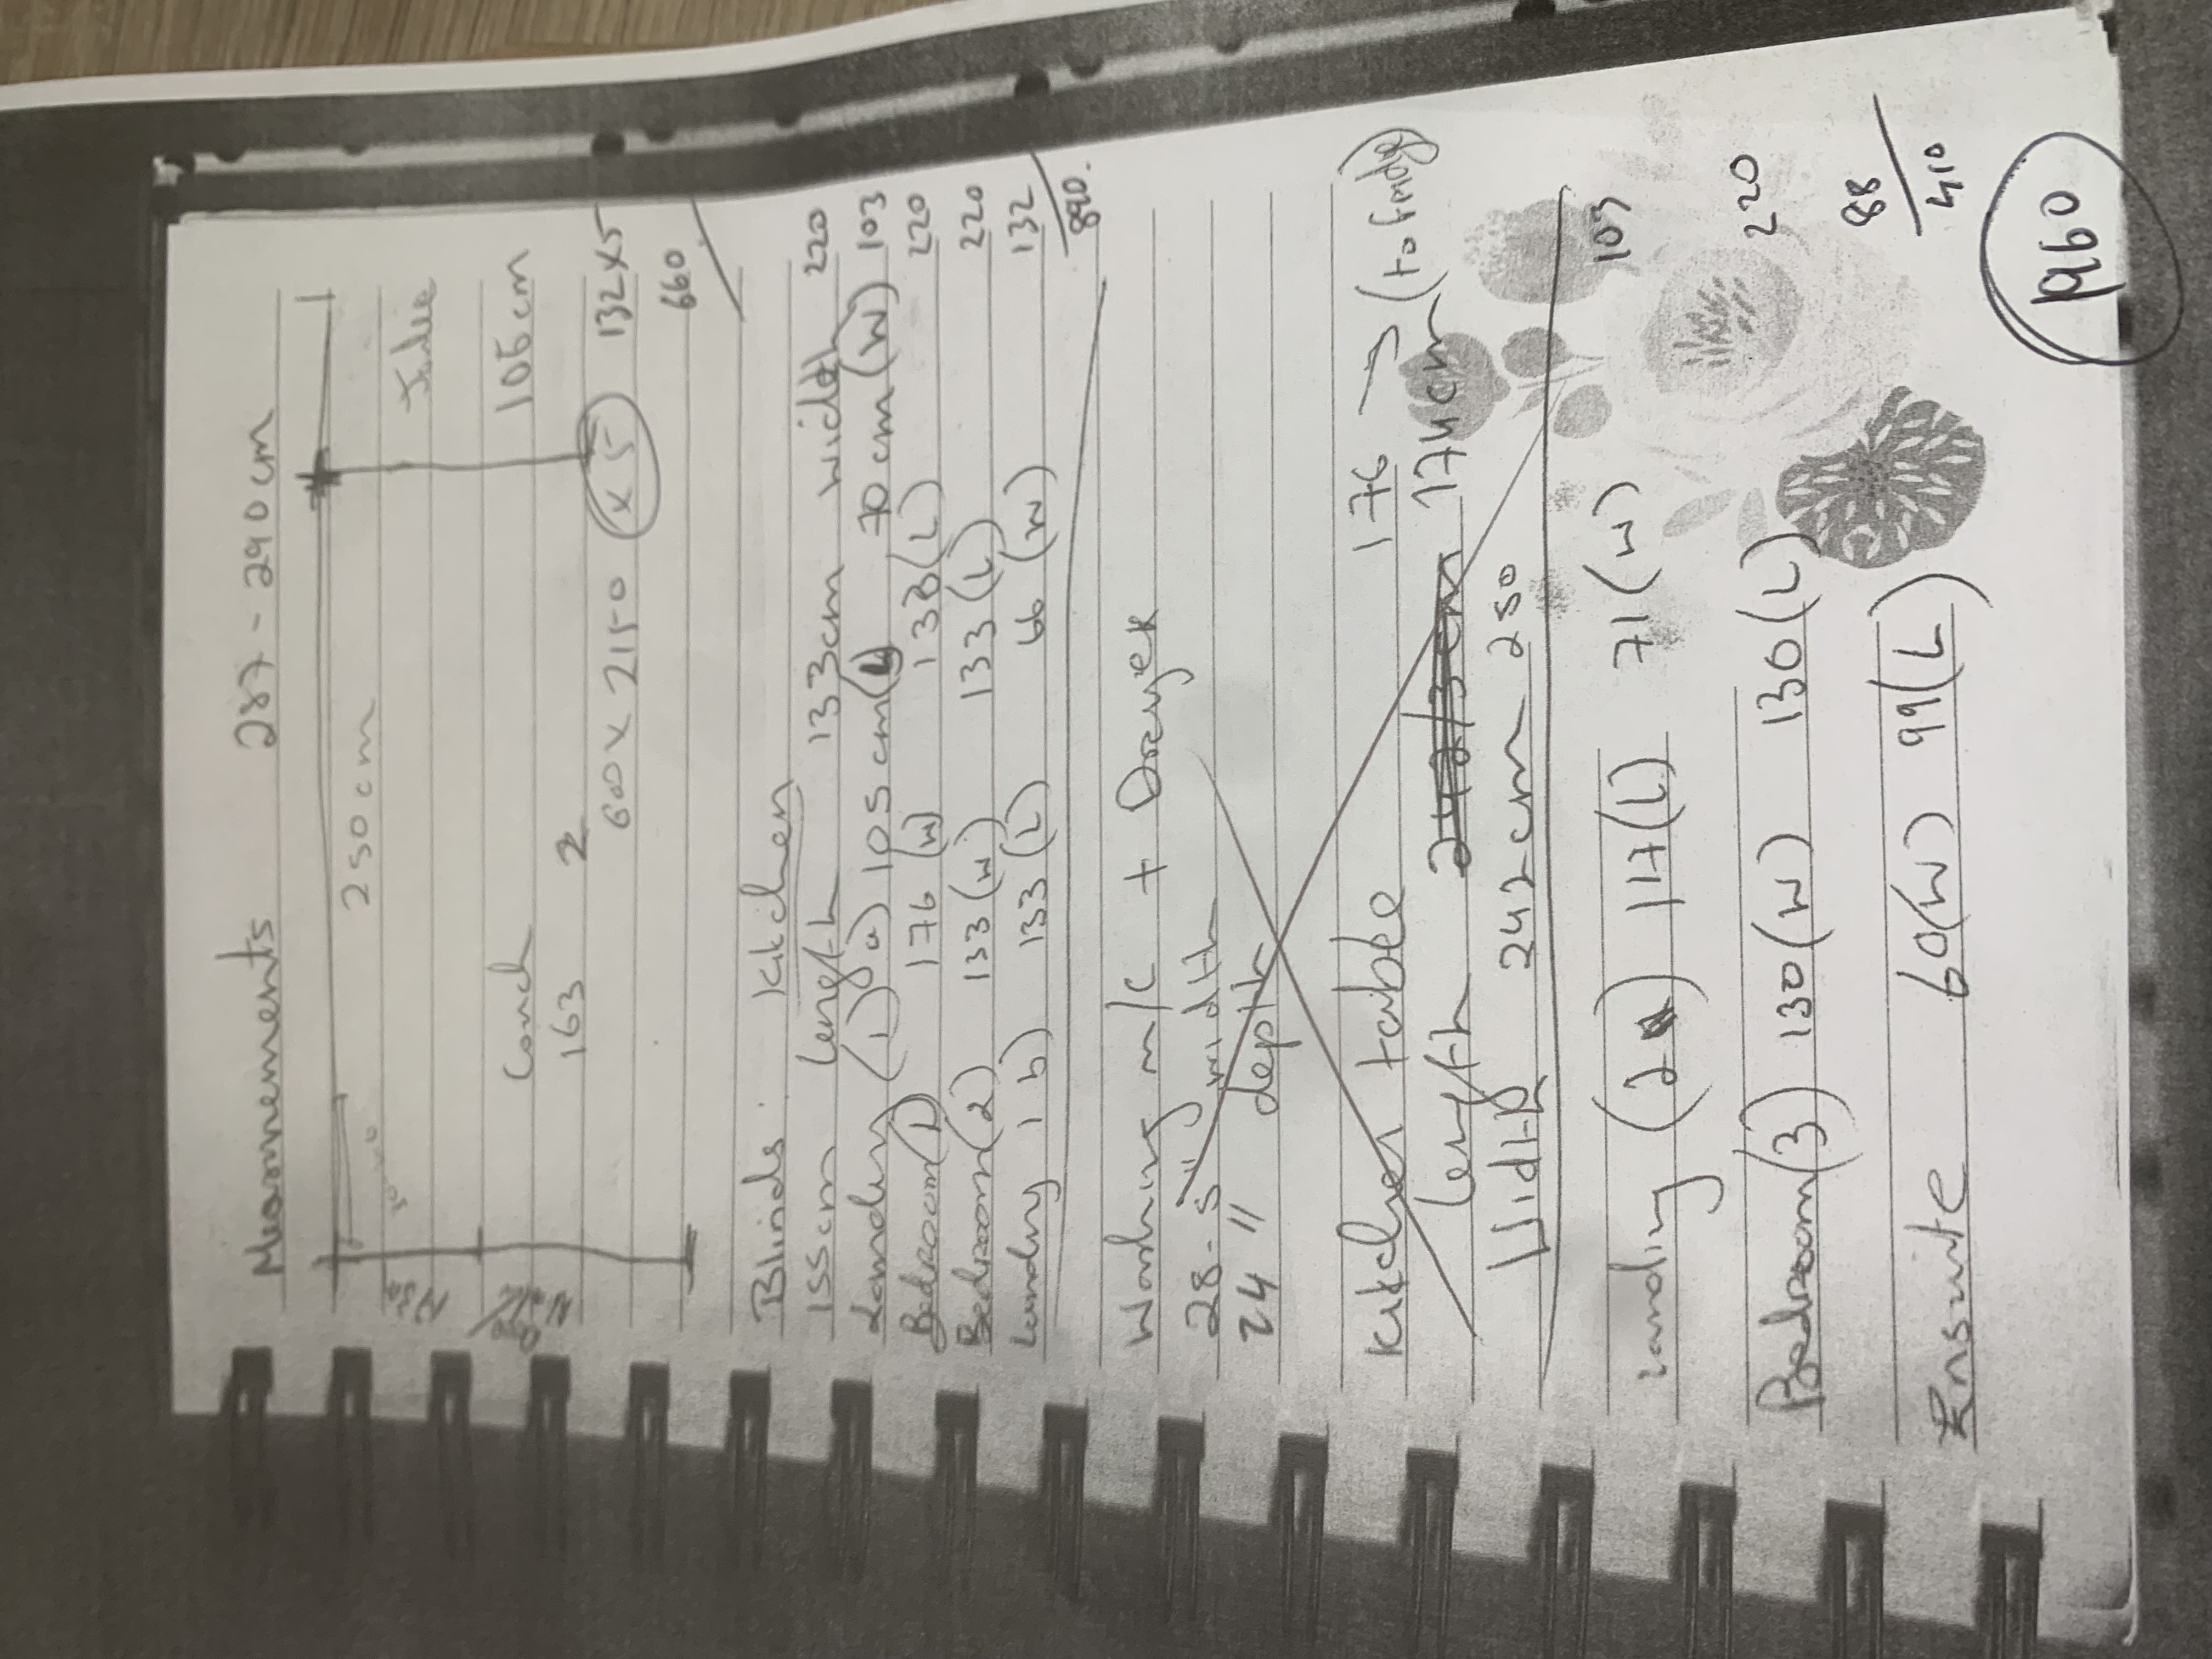 Measurements 287 - 290 cm
250 cm
Julie
Couch 106 cm
163 2
600 x 2150 x 5 132 x 5
660
Blinds. Kitchen
155 cm length 133 cm width 220
Landing (1) a) 105 cm (L) 70 cm (W) 103
Bedroom (1) 176 (W) 133 (L) 220
Bedroom (2) 133 (W) 133 (L) 220
Landing 1 b) 133 (L) 66 (W) 132
890.
Washing m/c + Dryer
28-5" width
24 " depth
Kitchen table 176 → (to fridge)
length 242/3 cm 174 cm
Width 242 cm 250
Landing (2) 117 (L) 71 (W) 103
Bedroom (3) 130 (W) 130 (L) 220
Ensuite 60 (W) 99 (L) 88
410
1960